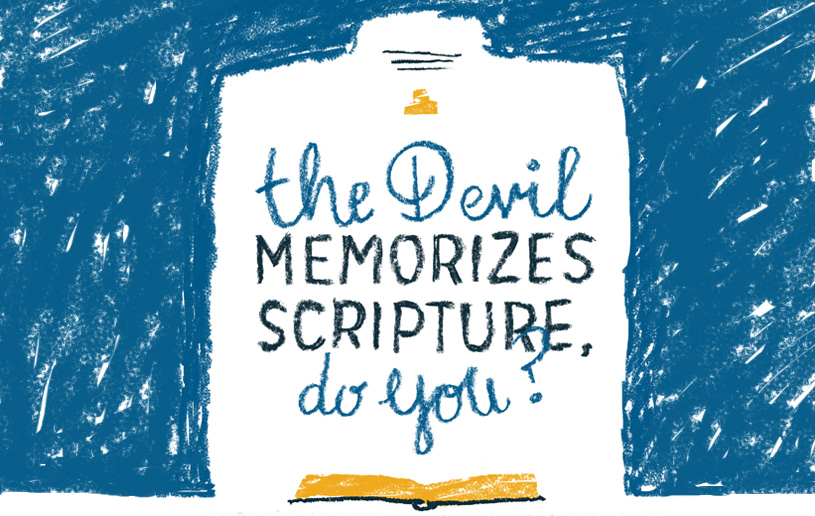 the Devil
MEMORIZES
SCRIPTURE,
do you?